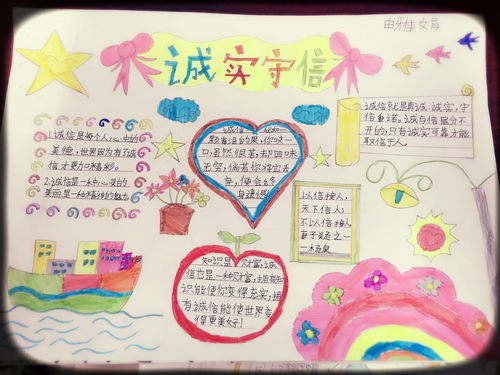 由雅女
诚实守信
1.诚信是每个人心中的
美德,世界因为有了诚
信才更加精彩。
2.诚信是一种心灵的
美丽,是一种精神的魅力
诚信
颗青涩的果,你咬一
口,虽然很苦,却回味
无穷,倘若你将它丢
弃,便会
诚信就是真诚、诚实,守
信重诺。诚与信是分不
开的,只有诚实可靠才能
取信于人。
以信接人,
天下信人;
不以信接人
妻子疑之
知识是 财富,诚
信也是一种财富,拥有知
识能使你变得充实,拥
有诚信能使世界变
得更美好!